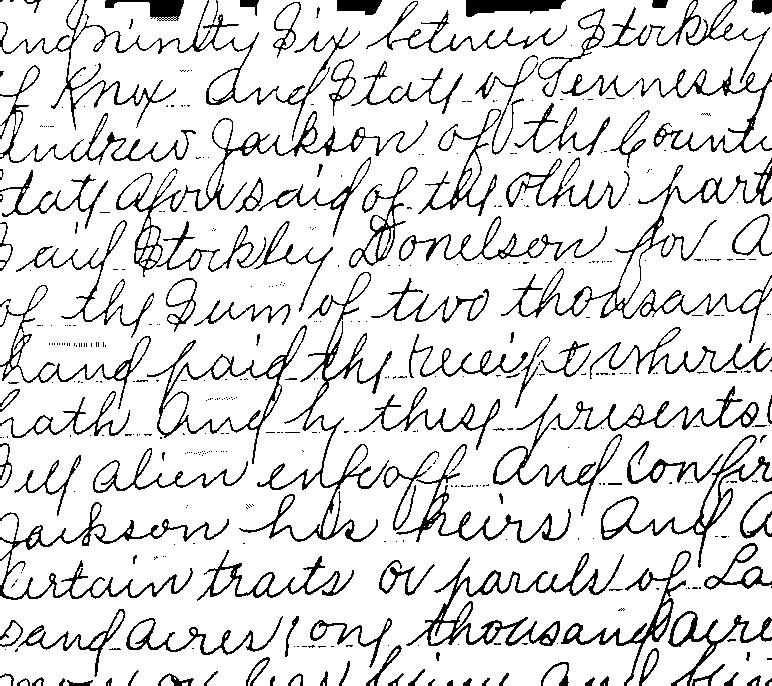 and ninety Six between Stockley
of Knox and State of Tennessee
Andrew Jackson of the Count
State aforesaid of the other part
Said Stockley Donelson for a
of the Sum of two thousand
hand paid the receipt where
hath and by these presents
Sell alien enfeoff and Confir
Jackson his heirs and a
Certain tracts or parcels of La
sand acres one thousand acre
more or less being and